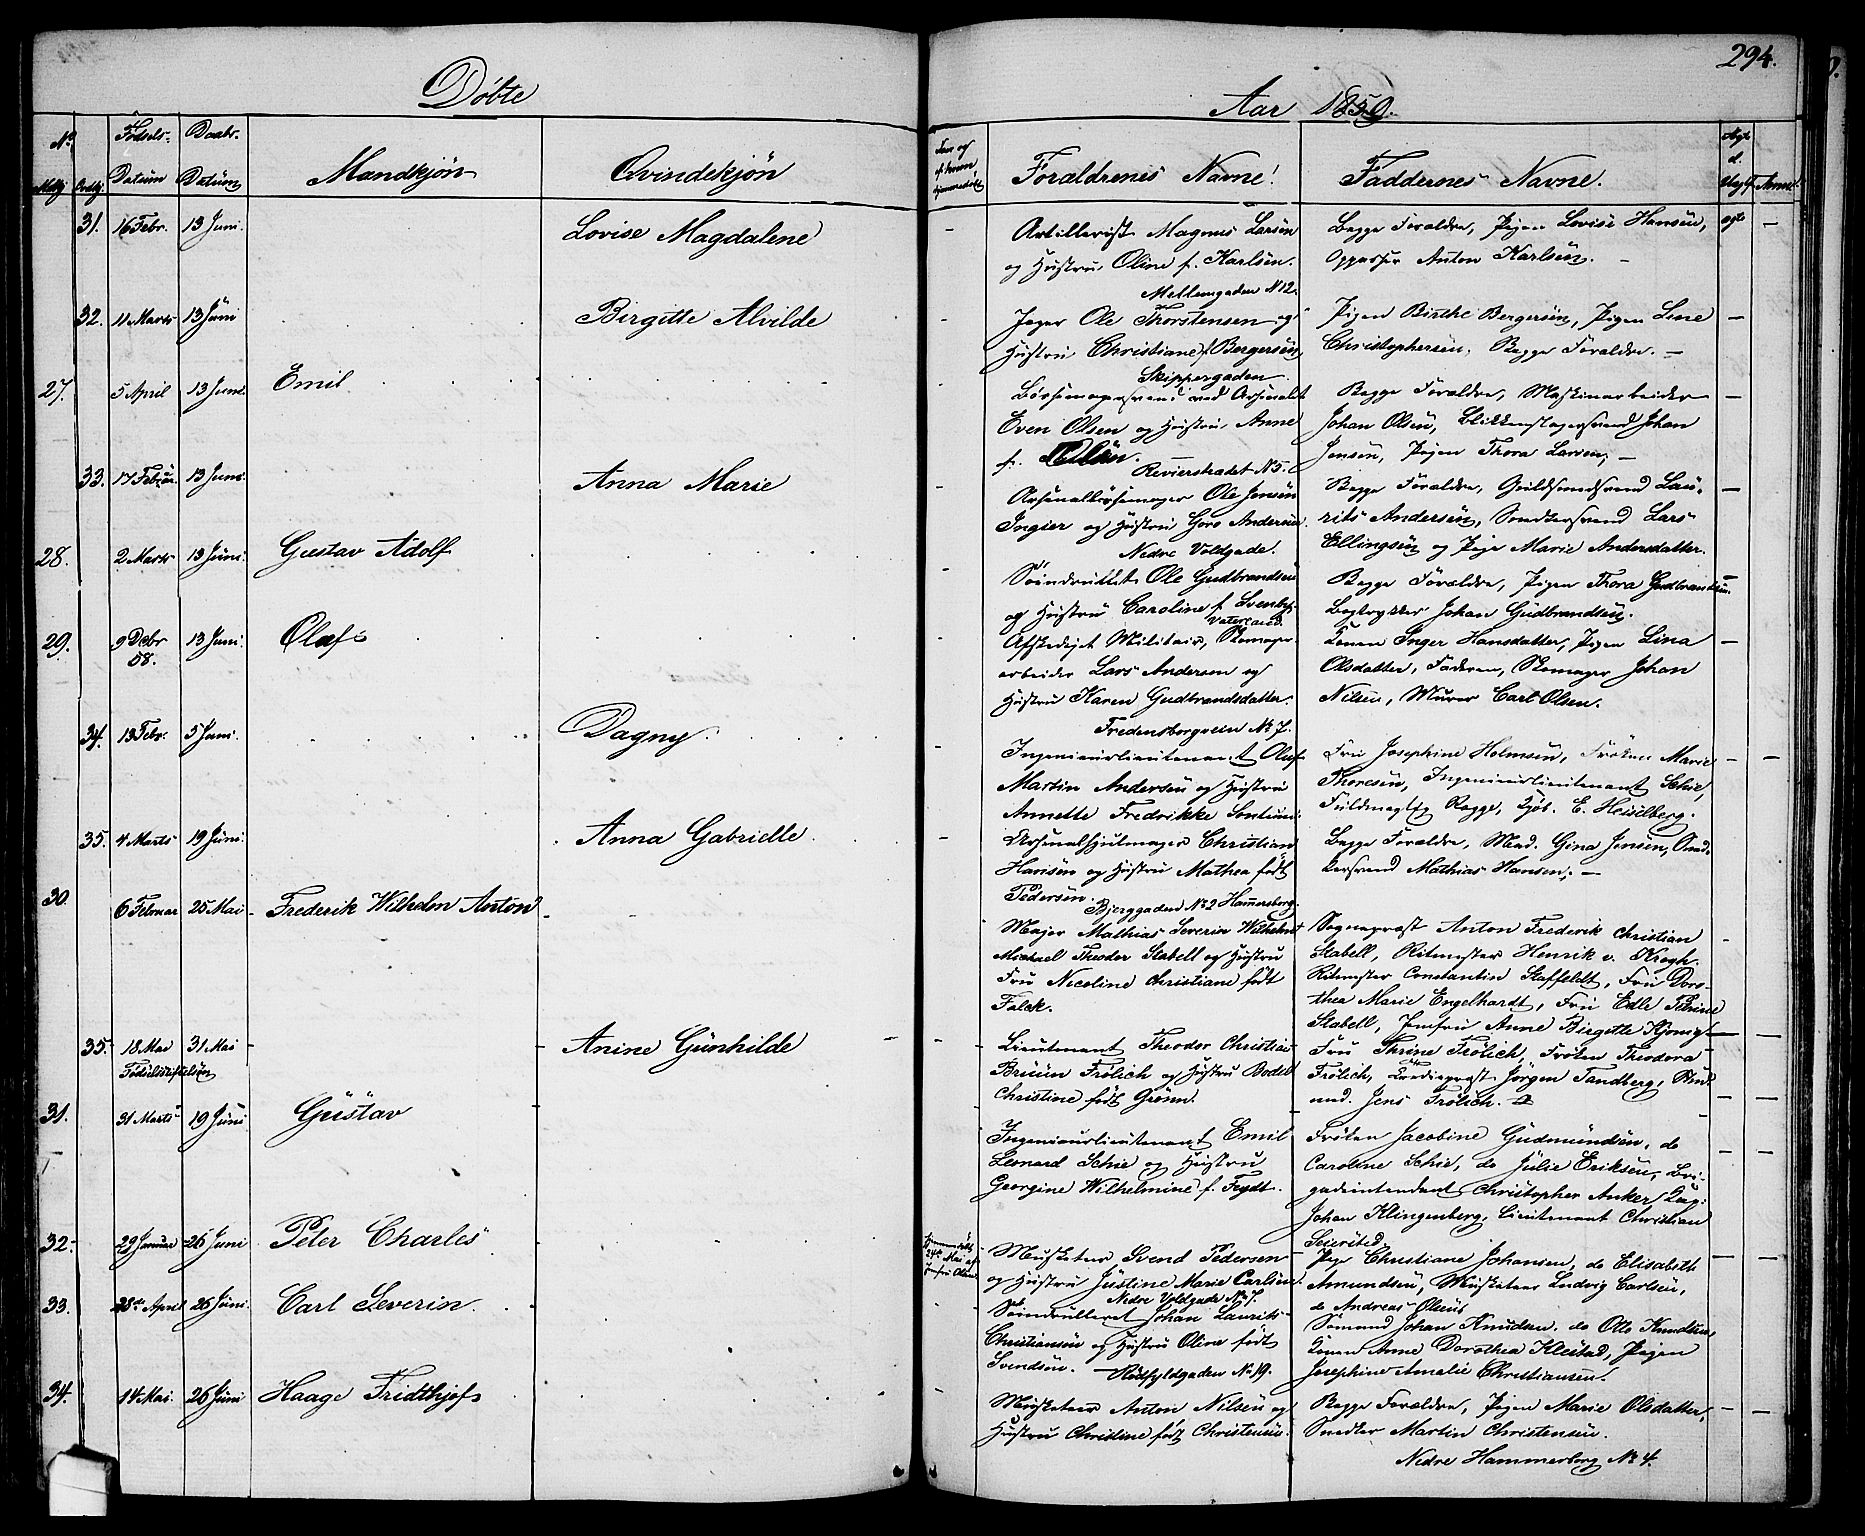 294.
Døbte
Aar 1859.
No.
Fødsels-
Datum
Daabs-
Datum
Mandkjøn
Qvindekjøn
Forældrenes Navne.
Faddernes Navne.
31. 16 Febr. 13 Juni. Lovise Magdalene
Artillerist Magnus Larsen
og Hustru Oline f. Karlsen.
Mellemgaden N 12.
Begge Forældre, Pigen Lovise Hansen,
Oppasser Anton Karlsen. —
ægte —
32. 11 Marts 13 Juni Birgitte Alvilde
Jæger Ole Thorstensen og
Hustru Christiane f. Bergersen,
Skippergaden
Pigen Birthe Bergersen, Pigen Line
Christophersen, Begge Forældre. —
27. 5 April 13 Juni. Emil
Bøssemagersvend ved Arsenalet
Even Olsen og Hustru Anne
f. Olsen.
Revierstrædet N 5.
Begge Forældre, Maskinarbeider
Johan Olsen, Blikkenslagersvend Johan
Jensen, Pigen Thora Larsen, —
33. 17 Februar. 13 Juni. Anna Marie
Arsenalbøssemager Ole Jensen
Ingier og Hustru Goro Andersen.
Nedre Voldgade.
Begge Forældre, Guldsmedsvend Lau-
rits Andersen, Snedkersvend Lars
Ellingsen og Pige Marie Andersdatter.
28. 2 Marts 13 Juni. Gustav Adolf
Søindrullet Ole Gudbrandsen
og Hustru Caroline f. Svenby.
Vaterland.
Begge Forældre, Pigen Thora Gudbrandsen.
Bogtrykker Johan Gudbrandsen.
29. 9 Debr 58. 13 Juni. Olaf
Afskediget Militair, Skomager-
arbeider Lars Andersen og
Hustru Karen Gudbrandsdatter.
Fredensborgveien No 7.
Konen Inger Hansdatter, Pigen Lina
Olsdatter, Faderen, Skomager Johan
Nilsen, Murer Carl Olsen.
34. 13 Febr. 5 Juni. Dagny.
Ingenieurlieutenant Oluf
Martin Andersen og Hustru
Annette Fredrikke Sontum.
Fru Josephine Holmsen, Frøken Marie
Thoresen, Ingenieurlieutenant Schie,
Fuldmægtig Rogge, E. Heiselberg.
35. 4 Marts 19 Juni. Anna Gabrielle.
Arsenalhjulmager Christian
Hansen og Hustru Mathea født
Pedersen.
Bjerggaden No 2 Hammersborg.
Begge Forældre, Mad. Gina Jensen, Sned-
kersvend Mathias Hansen, —
30. 6 Februar 25 Mai Frederik Wilhelm Anton
Major Mathias Severin Wilhelm
Michael Theodor Stabell og Hustru
Fru Nicoline Christiane født
Falck.
Sognepræst Anton Frederik Christian
Stabell, Ritmester Henrik v. Krogh.
Ritmester Constantin Staffeldt, Fru Doro-
thea Marie Engelhardt, Fru Edle Petrine
Stabell, Jomfru Anne Birgitte
35. 18 Mai 31 Mai Anine Gunhilde
Fødselsstiftelsen
Lieutenant Theodor Christian
Bruun Frølich og Hustru Bodell
Christine født Grønn.
Fru Thrine Frølich, Frøken Theodora
Frølich, Jørgen Tandberg, Stud.
Jens Frølich.
31. 31 Marts 19 Juni Gustav
Ingenieurlieutenant Emil
Leonard Schie og Hustru
Georgine Wilhelmine f. Feydt.
Frøken Jacobine Gudmundsen, do
Caroline Schie, do Julie Eriksen, Bri-
gadeintendant Christopher Anker,
Johan Klingenberg, Lieutenant Christian
Seiersted.
32. 29 Januar 26 Juni Peter Charles
Hjemmedøbt 24de Mai af Jomfru Olsen
Musketeer Svend Pedersen
og Hustru Justine Marie Carlsen.
Nedre Voldgade No 7.
Pige Christiane Johansen, do Elisabeth
Amundsen, Musketeer Ludvig Carlsen,
do Andreas Olsen
33. 28de April 26 Juni. Carl Severin.
Søindrulleret Johan Laurits
Christiansen og Hustru Oline født
Svendsen. — Rødfyldgaden No 19.
Sømand Johan Knudsen, do Otto Knudsen,
Konen Anne Dorothea Kleistad, Pigen
Josephine Amalie Christiansen.
34. 14 Mai. 26 Juni Haage Fridthjof
Musketeer Anton Nilsen og
Hustru Christine født Christensen.
Begge Forældre, Pigen Marie Olsdatter,
Snedker Martin Christensen.
Nedre Hammersborg No 4.